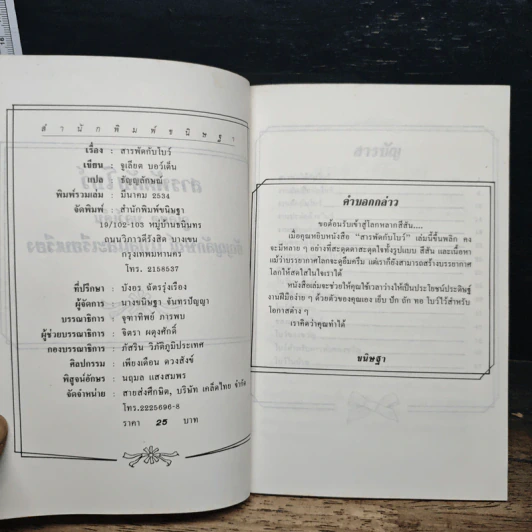 สำนักพิมพ์ชนิษฐา
เรื่อง : สารพัดกับโบว์
เขียน : จูเลียต บอว์เด็น
แปล : ธัญญลักษณ์
พิมพ์รวมเล่ม : มีนาคม 2534
จัดพิมพ์ : สำนักพิมพ์ชนิษฐา
19/102-103 หมู่บ้านชนินทร
ถนนวิภาวดีรังสิต บางเขน
กรุงเทพมหานคร
โทร. 2158537
ที่ปรึกษา : บังอร ฉัตรรุ่งเรือง
ผู้จัดการ : นางชนิษฐา จันทรปัญญา
บรรณาธิการ : จุฑาทิพย์ ภารพบ
ผู้ช่วยบรรณาธิการ : จิตรา ผดุงศักดิ์
กองบรรณาธิการ : ภัสริน วิภัติภูมิประเทศ
ศิลปกรรม : เพียงเดือน ดวงสังข์
พิสูจน์อักษร : นฤมล แสงสมพร
จัดจำหน่าย : สายส่งศึกษิต, บริษัท เคล็ดไทย จำกัด
โทร.2225696-8
ราคา 25 บาท
สารบัญ
คำบอกกล่าว
ขอต้อนรับเข้าสู่โลกหลากสีสัน....
เมื่อคุณหยิบหนังสือ "สารพัดกับโบว์" เล่มนี้ขึ้นพลิก คง
จะมีหลาย ๆ อย่างที่สะดุดตาสะดุดใจทั้งรูปแบบ สีสัน และเนื้อหา
แม้ว่าบรรยากาศโลกจะดูอึมครึม แต่เราก็ยังสามารถสร้างบรรยากาศ
โลกให้สดใสในใจเราได้
หนังสือเล่มจะช่วยให้คุณใช้เวลาว่างให้เป็นประโยชน์ประดิษฐ์
งานฝีมือง่าย ๆ ด้วยตัวของคุณเอง เย็บ ปัก ถัก ทอ โบว์ไว้สำหรับ
โอกาสต่าง ๆ
เราคิดว่าคุณทำได้
ชนิษฐา